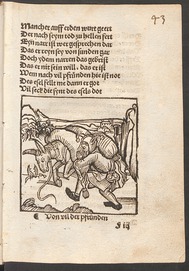 43
Mancher auff erden wort geert
Der nach seym tod zu hellen fert
Eyn narr ist wer gesprechen dar
Das er reyn sey von sünden gar
Doch ydem narren das gebrist
Das er nit sein will, das er ist
Wem nach vil pfründen hie ist not
Des esel fellt me dann er got
Vil seck die synt des esels dot
Von vil der pfründen